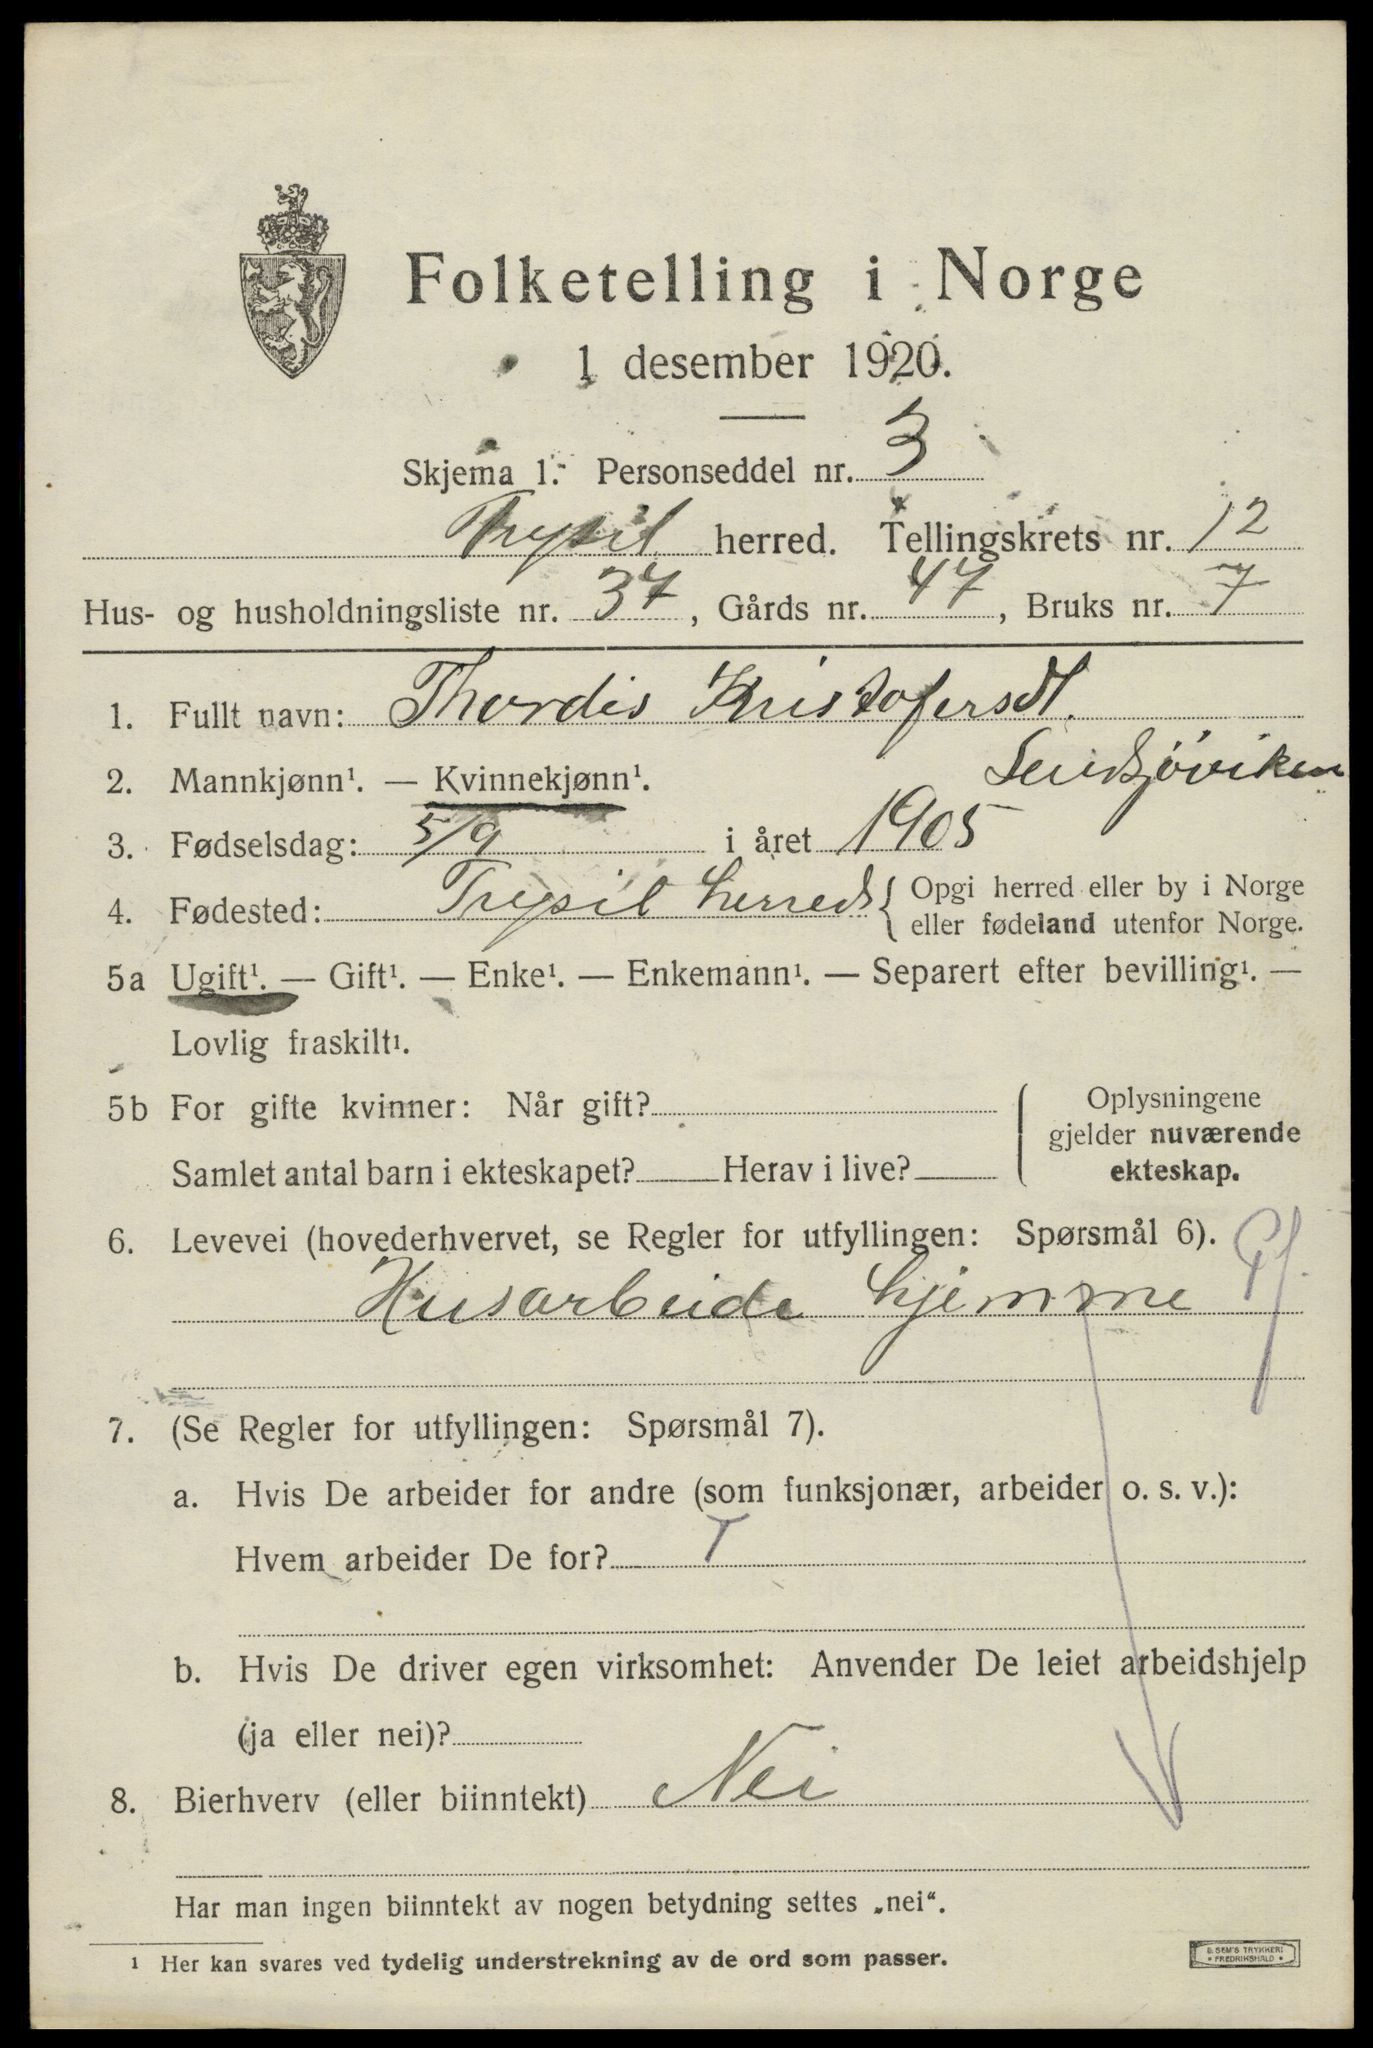 Folketelling i Norge
1 desember 1920.
Skjema 1. Personseddel nr. 3
Trysil herred. Tellingskrets nr. 12
Hus- og husholdningsliste nr. 37, Gårds nr. 47, Bruks nr. 7
1. Fullt navn: Thordis Kristofersdt.
2. Mannkjønn¹. — Kvinnekjønn¹.
3. Fødselsdag: 5/9 i året 1905
4. Fødested: Trysil herred { Opgi herred eller by i Norge
eller fødeland utenfor Norge.
5a Ugift¹. — Gift¹. — Enke¹. — Enkemann¹. — Separert efter bevilling¹. —
Lovlig fraskilt¹.
5b For gifte kvinner: Når gift?
Samlet antal barn i ekteskapet? Herav i live?
Oplysningene
gjelder nuværende
ekteskap.
6. Levevei (hovederhvervet, se Regler for utfyllingen: Spørsmål 6).
Husarbeide hjemme
7. (Se Regler for utfyllingen: Spørsmål 7).
a. Hvis De arbeider for andre (som funksjonær, arbeider o. s. v.):
Hvem arbeider De for?
b. Hvis De driver egen virksomhet: Anvender De leiet arbeidshjelp
(ja eller nei)?
8. Bierhverv (eller biinntekt) Nei
Har man ingen biinntekt av nogen betydning settes „nei“.
¹ Her kan svares ved tydelig understrekning av de ord som passer.
E. SEM'S TRYKKERI
FREDRIKSHALD